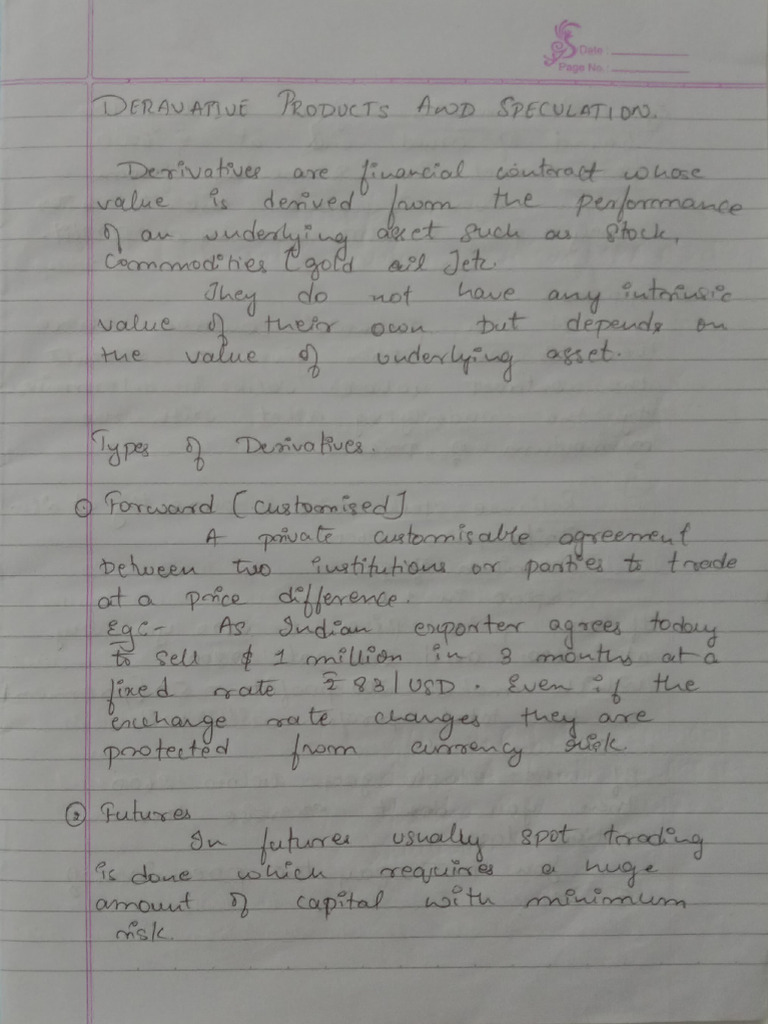 Date :
Page No :
DERAVATIVE PRODUCTS AND SPECULATION.
Derivatives are financial contract whose
value is derived from the performance
of an underlying asset such as stock,
Commodities [gold oil ]etc
They do not have any intrinsic
value of their own but depends on
the value of underlying asset.
Types of Derivatives.
① Forward [customised]
A private customisable agreement
between two institutions or parties to trade
at a price difference.
Eg:- As Indian exporter agrees today
to sell $ 1 million in 3 months at a
fixed rate ₹ 83/USD. Even if the
exchange rate changes they are
protected from currency risk.
② Futures
In futures usually spot trading
is done which requires a huge
amount of capital with minimum
risk.